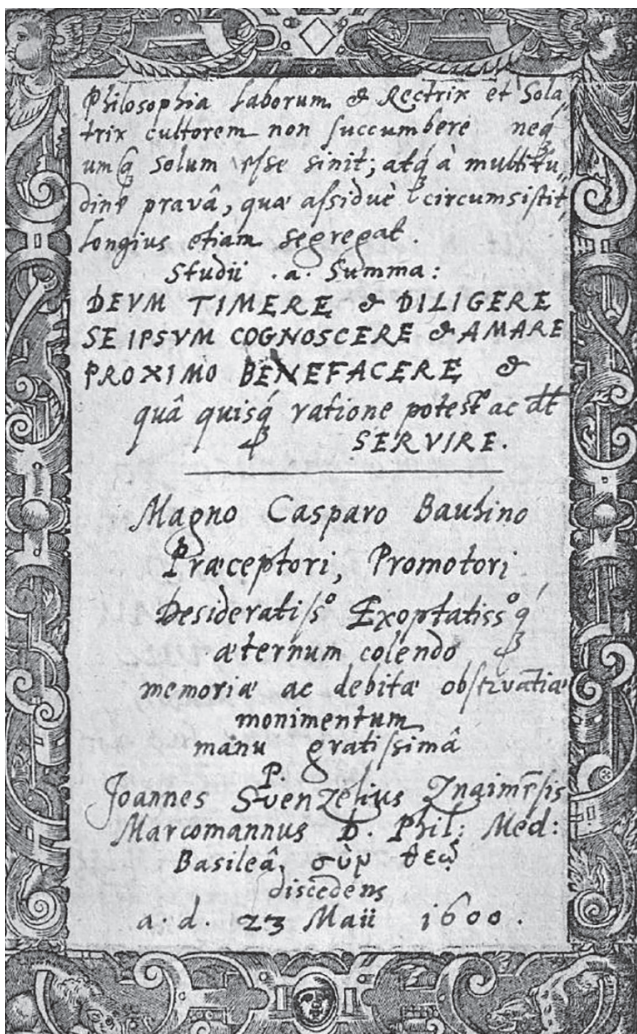 Philosophia laborum & Rectrix et Sola„
trix cultorem non succumbere neq́
umq́ solum esse sinit; atq́ à multitu„
dine pravâ, quæ assiduè circumsistit,
longius etiam segregat.
Studii .a. Summa:
DEVM TIMERE & DILIGERE
SE IPSVM COGNOSCERE & AMARE
PROXIMO BENEFACERE &
quâ quisq́ ratione potest ac
SERVIRE.
Magno Casparo Bauhino
Præceptori, Promotori
Desideratissº Exoptatissº q́
æternum colendo
memoriæ ac debitæ
monimentum
manu gratissimâ
P.
Joannes Svenzelius
Marcomannus D. Phil: Med:
Basileâ σὺν θεῷ
discedens
a. d. 23 Maii 1600.